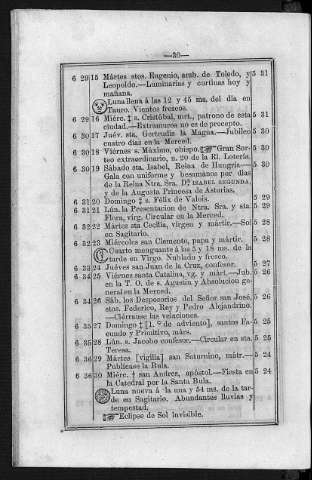 —30—
6 29 15 Mártes stos. Eugenio, arzb. de Toledo, y 5 31
Leopoldo.—Luminarias y cortinas hoy y
mañana.
Luna llena á las 12 y 45 ms. del dia en
Tauro. Vientos frescos.
6 29 16 Miérc. ‡ s. Cristóbal, mrt., patrono de esta 5 31
ciudad.—Extramuros no es de precepto.
6 30 17 Juév. sta. Gertrudis la Magna.—Jubileo 5 30
cuatro dias en la Merced.
6 30 18 Viérnes s. Máximo, obispo. Gran Sor- 5 30
teo extraordinario, n. 20 de la Rl. Lotería.
6 30 19 Sábado sta. Isabel, Reina de Hungría— 5 30
Gala con uniforme y besamanos por dias
de la Reina Ntra. Sra. Dª ISABEL SEGUNDA
y de la Augusta Princesa de Asturias.
6 31 20 Domingo ‡ s. Félix de Valois. 5 29
6 31 21 Lún. la Presentacion de Ntra. Sra. y sta. 5 29
Flora, virg. Circular en la Merced.
6 32 22 Mártes sta Cecilia, vírgen y mártir.—Sol 5 28
en Sagitario.
6 32 23 Miércoles san Clemente, papa y mártir. 5 28
Cuarto menguante á las 5 y 18 ms. de la
tarde en Virgo. Nublado y fresco.
6 33 24 Juéves san Juan de la Cruz, confesor. 5 27
6 34 25 Viérnes santa Catalina, vg. y márt.—Jub. 5 26
en la T. O. de s. Agustin y Absolucion ge-
neral en la Merced.
6 34 26 Sáb. los Desposorios del Señor san José, 5 26
stos. Federico, Rey y Pedro Alejandrino.
—Ciérranse las velaciones.
6 35 27 Domingo ‡ [1. º de adviento], santos Fa- 5 25
cundo y Primitivo, márs.
6 35 28 Lún. s. Jacobo confesor.—Circular en sta. 5 25
Teresa.
6 36 29 Mártes [vigilia] san Saturnino, márt.— 5 24
Publícase la Bula.
6 36 30 Miérc. † san Andres, apóstol.—Fiesta en 5 24
la Catedral por la Santa Bula.
Luna nueva á la una y 54 ms. de la tar-
de en Sagitario. Abundantes lluvias y
tempestad.
Eclipse de Sol invisible.